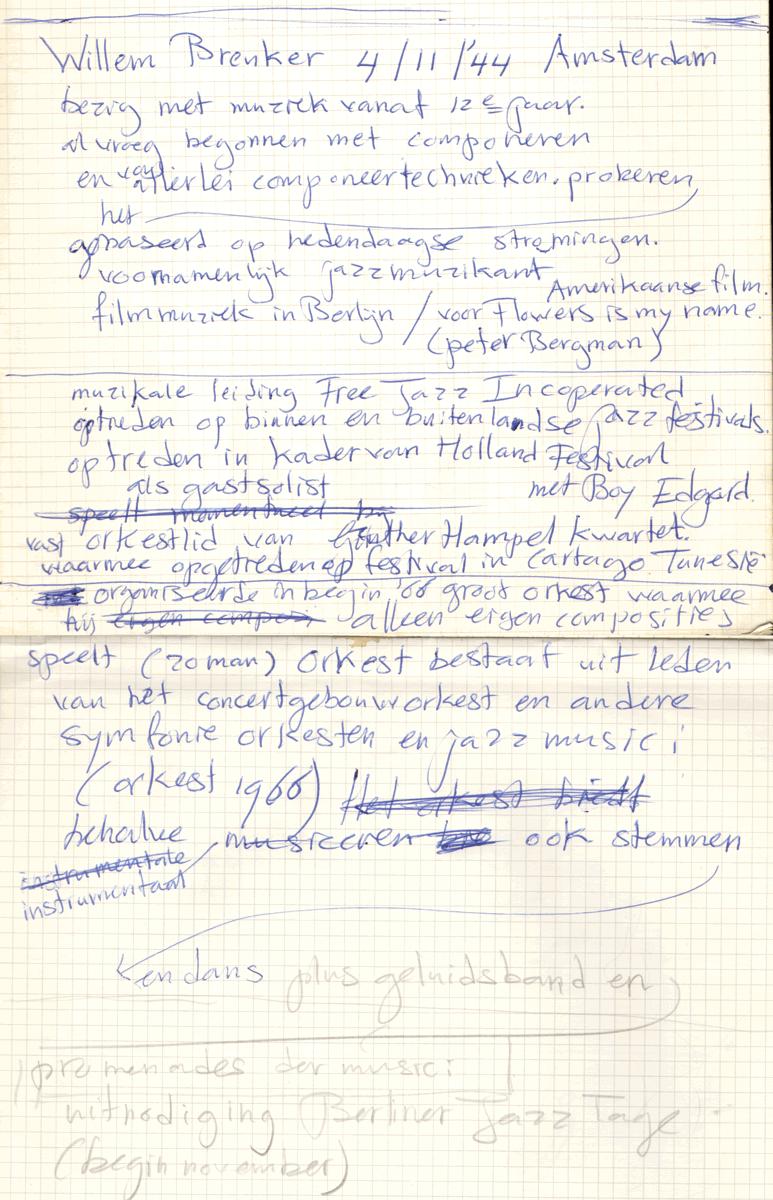 Willem Breuker 4/11/'44 Amsterdam
bezig met muziek vanaf 12e jaar.
al vroeg begonnen met componeren
en van allerlei componeertechnieken. proberen
het
gebaseerd op hedendaagse stromingen.
voornamenlijk jazzmuzikant
Amerikaanse film.
filmmuziek in Berlijn / voor Flowers is my name.
(peter Bergman)
muzikale leiding Free Jazz Incoperated
optreden op binnen en buitenlandse jazz festivals.
optreden in kader van Holland Festival
als gastsolist met Boy Edgard.
speelt momenteel bij
vast orkestlid van Günther Hampel kwartet.
waarmee opgetreden op festival in Cartago Tunesië
organiseerde in begin '66 groot orkest waarmee
hij eigen compos. alleen eigen composities
speelt (20 man) Orkest bestaat uit leden
van het concertgebouworkest en andere
symfonie orkesten en jazz musici
(orkest 1966) Het orkest biedt
behalve musiceren ook stemmen
instrumentale
instrumentaal
en dans plus geluidsband en
promenades der musici
uitnodiging Berliner Jazz Tage
(begin november)